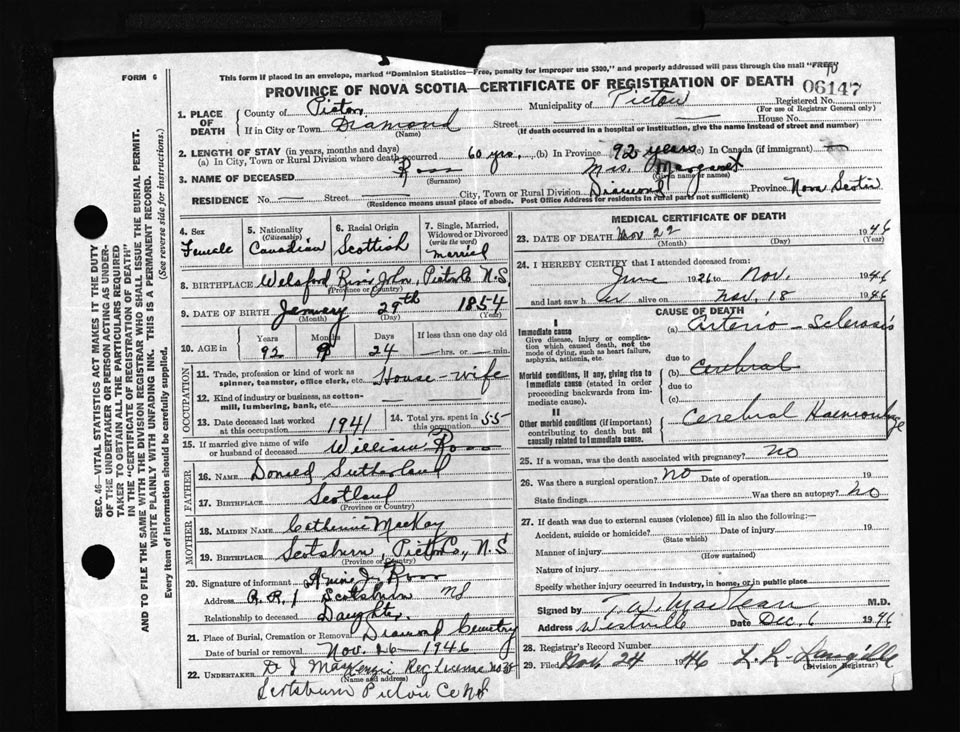 FORM 6
This form if placed in an envelope, marked "Dominion Statistics—Free, penalty for improper use $300," and properly addressed will pass through the mail "FREE"
PROVINCE OF NOVA SCOTIA—CERTIFICATE OF REGISTRATION OF DEATH
06147
Registered No.
(For use of Registrar General only)
1. PLACE OF DEATH
County of Pictou
Municipality of Pictou
If in City or Town Diamond Street House No.
(Name)
(If death occurred in a hospital or institution, give the name instead of street and number)
2. LENGTH OF STAY (in years, months and days)
(a) In City, Town or Rural Division where death occurred 60 yrs. (b) In Province 92 years (c) In Canada (if immigrant) —
3. NAME OF DECEASED Ross Mrs. Margaret
(Surname) (Given name or names)
RESIDENCE No. — Street City, Town or Rural Division Diamond Province Nova Scotia
(Residence means usual place of abode. Post Office Address for residents in rural parts not sufficient)
4. Sex Female
5. Nationality (Citizenship) Canadian
6. Racial Origin Scottish
7. Single, Married, Widowed or Divorced (write the word) Married
8. BIRTHPLACE Welsford River John, Pictou Co N.S.
(Province or Country)
9. DATE OF BIRTH January 29th 1854
(Month) (Day) (Year)
10. AGE in Years 92 Months 9 Days 24 If less than one day old —hrs. or —min.
OCCUPATION
11. Trade, profession or kind of work as spinner, teamster, office clerk, etc. House-wife
12. Kind of industry or business, as cotton-mill, lumbering, bank, etc.
13. Date deceased last worked at this occupation 1941
14. Total yrs. spent in this occupation 55
15. If married give name of wife or husband of deceased William Ross
FATHER
16. NAME Donald Sutherland
17. BIRTHPLACE Scotland
(Province or Country)
MOTHER
18. MAIDEN NAME Catherine MacKay
19. BIRTHPLACE Scotsburn, Pictou Co., N.S
(Province or Country)
20. Signature of informant Annie J. Ross
Address R.R.1 Scotsburn NS
Relationship to deceased Daughter
21. Place of Burial, Cremation or Removal Diamond Cemetery
Date of burial or removal Nov. 26 - 1946
22. UNDERTAKER D J MacKenzie Reg License no
(Name and address)
Scotsburn Pictou Co NS
MEDICAL CERTIFICATE OF DEATH
23. DATE OF DEATH Nov 22 1946
(Month) (Day) (Year)
24. I HEREBY CERTIFY that I attended deceased from:
June 1926 to Nov. 1946
and last saw her alive on Nov. 18 1946
CAUSE OF DEATH
I
Immediate cause
Give disease, injury or complication which caused death, not the mode of dying, such as heart failure, asphyxia, asthenia, etc.
(a) Arterio-Sclerosis
due to
(b) Cerebral
due to
(c)
Morbid conditions, if any, giving rise to immediate cause (stated in order proceeding backwards from immediate cause).
II
Other morbid conditions (if important) contributing to death but not causally related to immediate cause.
Cerebral Haemorrhage
25. If a woman, was the death associated with pregnancy? no
26. Was there surgical operation? no Date of operation 19
State findings Was there an autopsy? no
27. If death was due to external causes (violence) fill in also the following:—
Accident, suicide or homicide? Date of injury 19
(State which)
Manner of injury
(How sustained)
Nature of injury
Specify whether injury occurred in industry, in home, or in public place
Signed by T. W. MacLean M.D.
Address Westville Date Dec. 6 1946
28. Registrar's Record Number
29. Filed Nov 24 1946 L. R. Langille
(Division Registrar)
SEC. 46—VITAL STATISTICS ACT MAKES IT THE DUTY
OF THE UNDERTAKER OR PERSON ACTING AS UNDERTAKER TO OBTAIN ALL THE PARTICULARS REQUIRED
IN THE "CERTIFICATE OF REGISTRATION OF DEATH"
AND TO FILE THE SAME WITH THE DIVISION REGISTRAR WHO SHALL ISSUE THE BURIAL PERMIT.
WRITE PLAINLY WITH UNFADING INK. THIS IS A PERMANENT RECORD.
Every item of information should be carefully supplied. (See reverse side for instructions.)